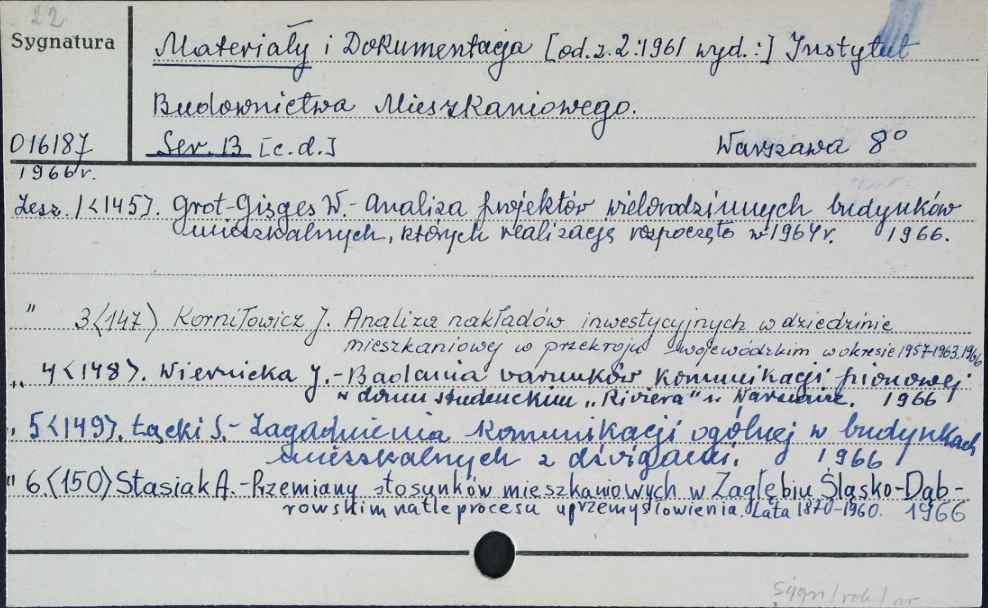 22
Sygnatura
Materiały i Dokumentacja [od.z.2:1961 wyd.:] Instytut
Budownictwa Mieszkaniowego.
016187 Ser. B [c.d.] Warszawa 8°
1966 r.
Zesz. 1<145>. Grot-Gisges W. - Analiza projektów wielorodzinnych budynków
mieszkalnych, których realizację rozpoczęto w 1964 r. 1966.
" 3<147> Korniłowicz J. Analiza nakładów inwestycyjnych w dziedzinie
mieszkaniowej w przekroju wojewódzkim w okresie 1957-1963. 1966
" 4<148>. Wiernicka J. - Badania warunków komunikacji pionowej
w domu studenckim „Riviera" w Warszawie. 1966
" 5<149>. Łącki S. - Zagadnienia komunikacji ogólnej w budynkach
mieszkalnych z dźwigami. 1966
" 6.<150> Stasiak A. - Przemiany stosunków mieszkaniowych w Zagłębiu Śląsko-Dąb-
rowskim na tle procesu uprzemysłowienia. Lata 1870-1960. 1966
sygn/rok/nr